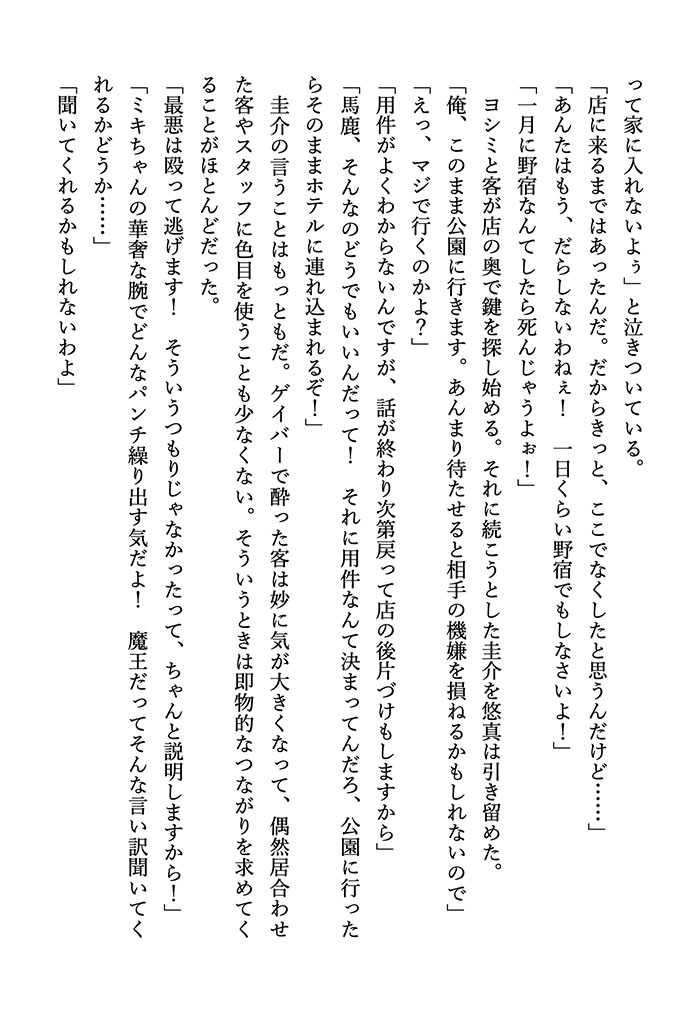 って家に入れないよぅ」と泣きついている。
「店に来るまではあったんだ。だからきっと、ここでなくしたと思うんだけど……」
「あんたはもう、だらしないわねぇ！　一日くらい野宿でもしなさいよ！」
「一月に野宿なんてしたら死んじゃうよぉ！」
　ヨシミと客が店の奥で鍵を探し始める。それに続こうとした圭介を悠真は引き留めた。
「俺、このまま公園に行きます。あんまり待たせると相手の機嫌を損ねるかもしれないので」
「えっ、マジで行くのかよ？」
「用件がよくわからないんですが、話が終わり次第戻って店の後片づけもしますから」
「馬鹿、そんなのどうでもいいんだって！　それに用件なんて決まってんだろ、公園に行った
らそのままホテルに連れ込まれるぞ！」
　圭介の言うことはもっともだ。ゲイバーで酔った客は妙に気が大きくなって、偶然居合わせ
た客やスタッフに色目を使うことも少なくない。そういうときは即物的なつながりを求めてく
ることがほとんどだった。
「最悪は殴って逃げます！　そういうつもりじゃなかったって、ちゃんと説明しますから！」
「ミキちゃんの華奢な腕でどんなパンチ繰り出す気だよ！　魔王だってそんな言い訳聞いてく
れるかどうか……」
「聞いてくれるかもしれないわよ」